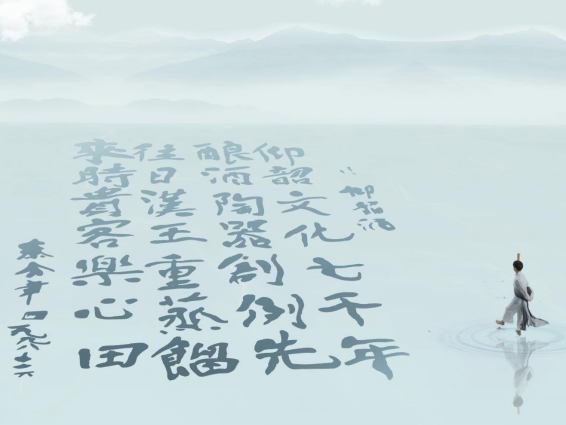 仰韶酒
仰韶文化七千年
酿酒陶器創例先
往日漢王重蒸餾
來時貴客樂心田
秦含章